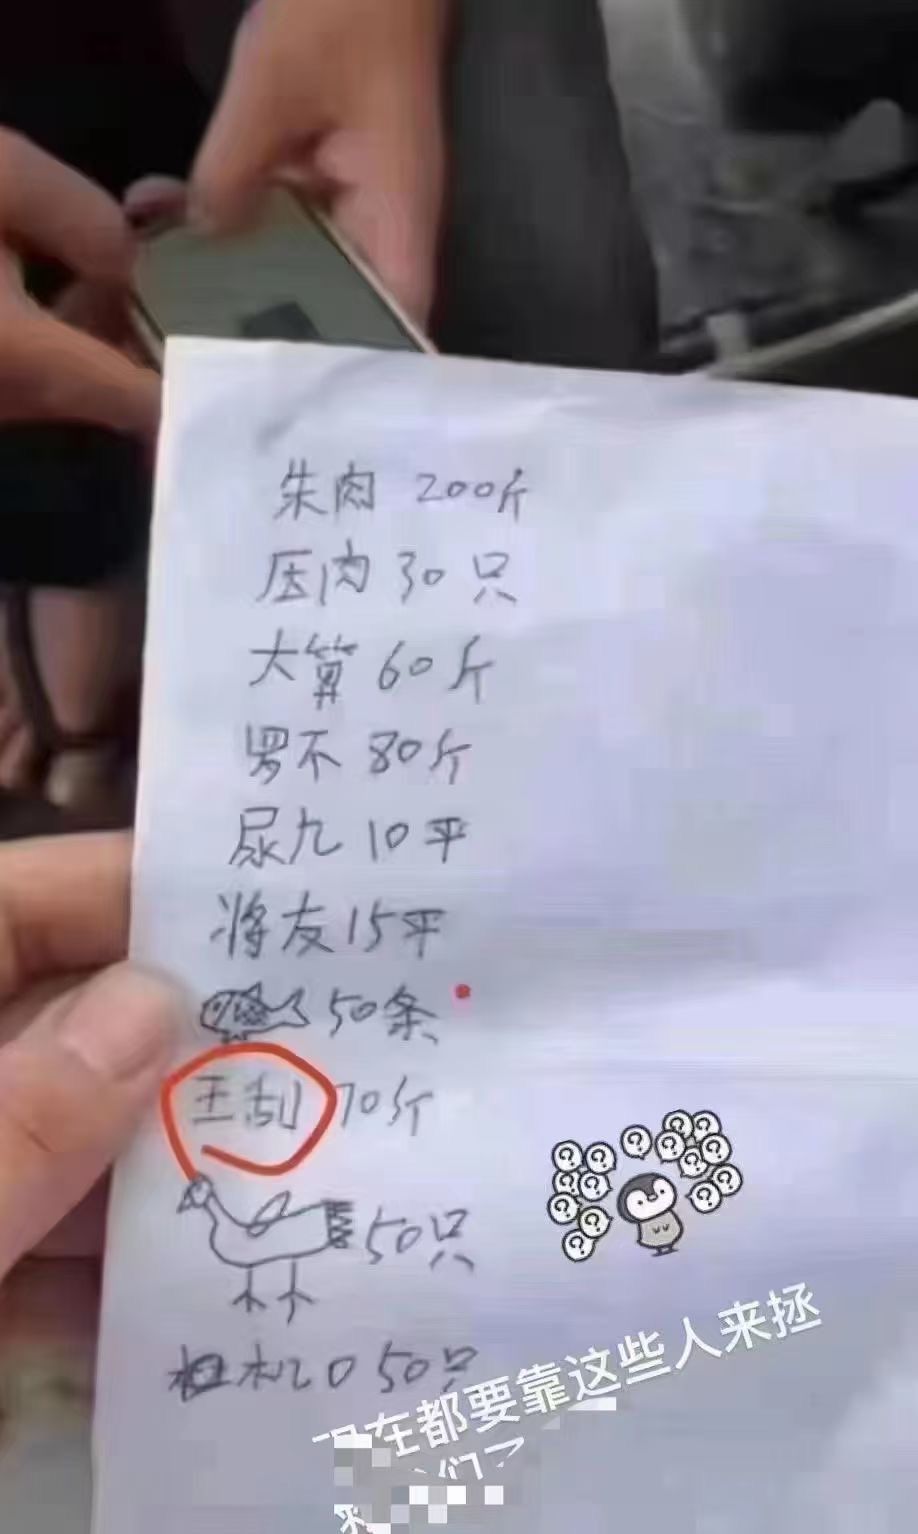 朱肉 200斤
压肉 30只
大算 60斤
罗不 80斤
尿九 10平
将友 15平
50条
王刮 70斤
50只
50只
现在都要靠这些人来拯
们了